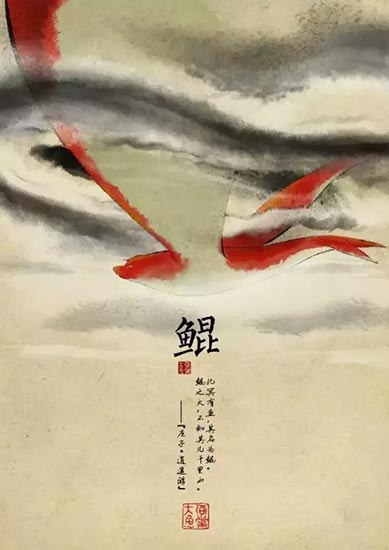 鲲
北冥有鱼，其名为鲲。
鲲之大，不知其几千里也。
——『庄子·逍遥游』